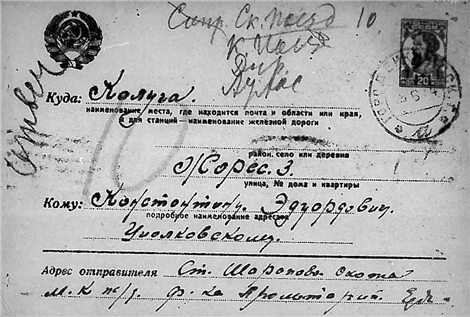 10.
20
Ответ
Куда: Калуга.
наименование места, где находится почта и области или края,
а для станций—наименование железной дороги
10
район, село или деревня
Жорес. 3.
улица, № дома и квартиры
Кому: Константин. Эдуардович.
подробное наименование адресата
Циолковскому.
Адрес отправителя Ст. Шарапова охота
М. К ж/д. ф-ка Пролетарий.